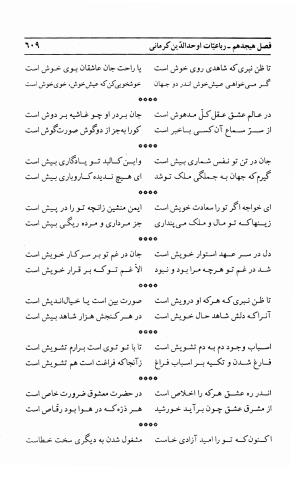 فصل هیجدهم - رباعیّات اوحدالدّین کرمانی ۶۰۹
تا ظن نبری که شاهدی روی خوش است یا راحت جان عاشقان بوی خوش است
گر می‌خواهی عیش خوش اندر دو جهان خوشخویی کن که عیش خوش، خوی خوش است
****
در عالم عشق عقل کلّ مدهوش است جان بردر او چو غاشیه بر دوش است
از سرّ سماع آن کسی باخبر است کورا به‌جز از دو گوش صورت گوش است
****
جان در تن تو نفس شماری بیش است وین کالبد تو یادگاری بیش است
گیرم که جهان به جملگی ملک تو شد ای هیچ ندیده کاروباری بیش است
****
ای خواجه اگر تو را سعادت خویش است ایمن منشین زانچه تو را در پیش است
زینها که تو مال و ملک می‌پنداری جز مرداری و مرده ریگی بیش است
****
دل در سر عهد استوار خویش است جان در غم تو بر سر کار خویش است
شد در غم تو هرچه مرا بود و نبود الاّ غم تو که بر قرار خویش است
****
تا ظن نبری که هرکه او درویش است صورت بین است یا خیال‌اندیش است
آنرا که دلش شاهد حال خویش است در هر کنجش هزار شاهد بیش است
****
اسباب وجود دم به دم تشویش است تا با تو توی است برابرم تشویش است
فارغ شدن و تکیه بر اسباب فراغ زآنجا که فراغت است هم تشویش است
****
اندر ره عشق هرکه را اخلاص است در حضرت معشوق ضرورت خاص است
از مشرق عشق چون برآید خورشید هر ذرّه که در هوا بود رقّاص است
****
اکنون که تو را امید آزادی خاست مشغول شدن به دیگری سخت خطاست